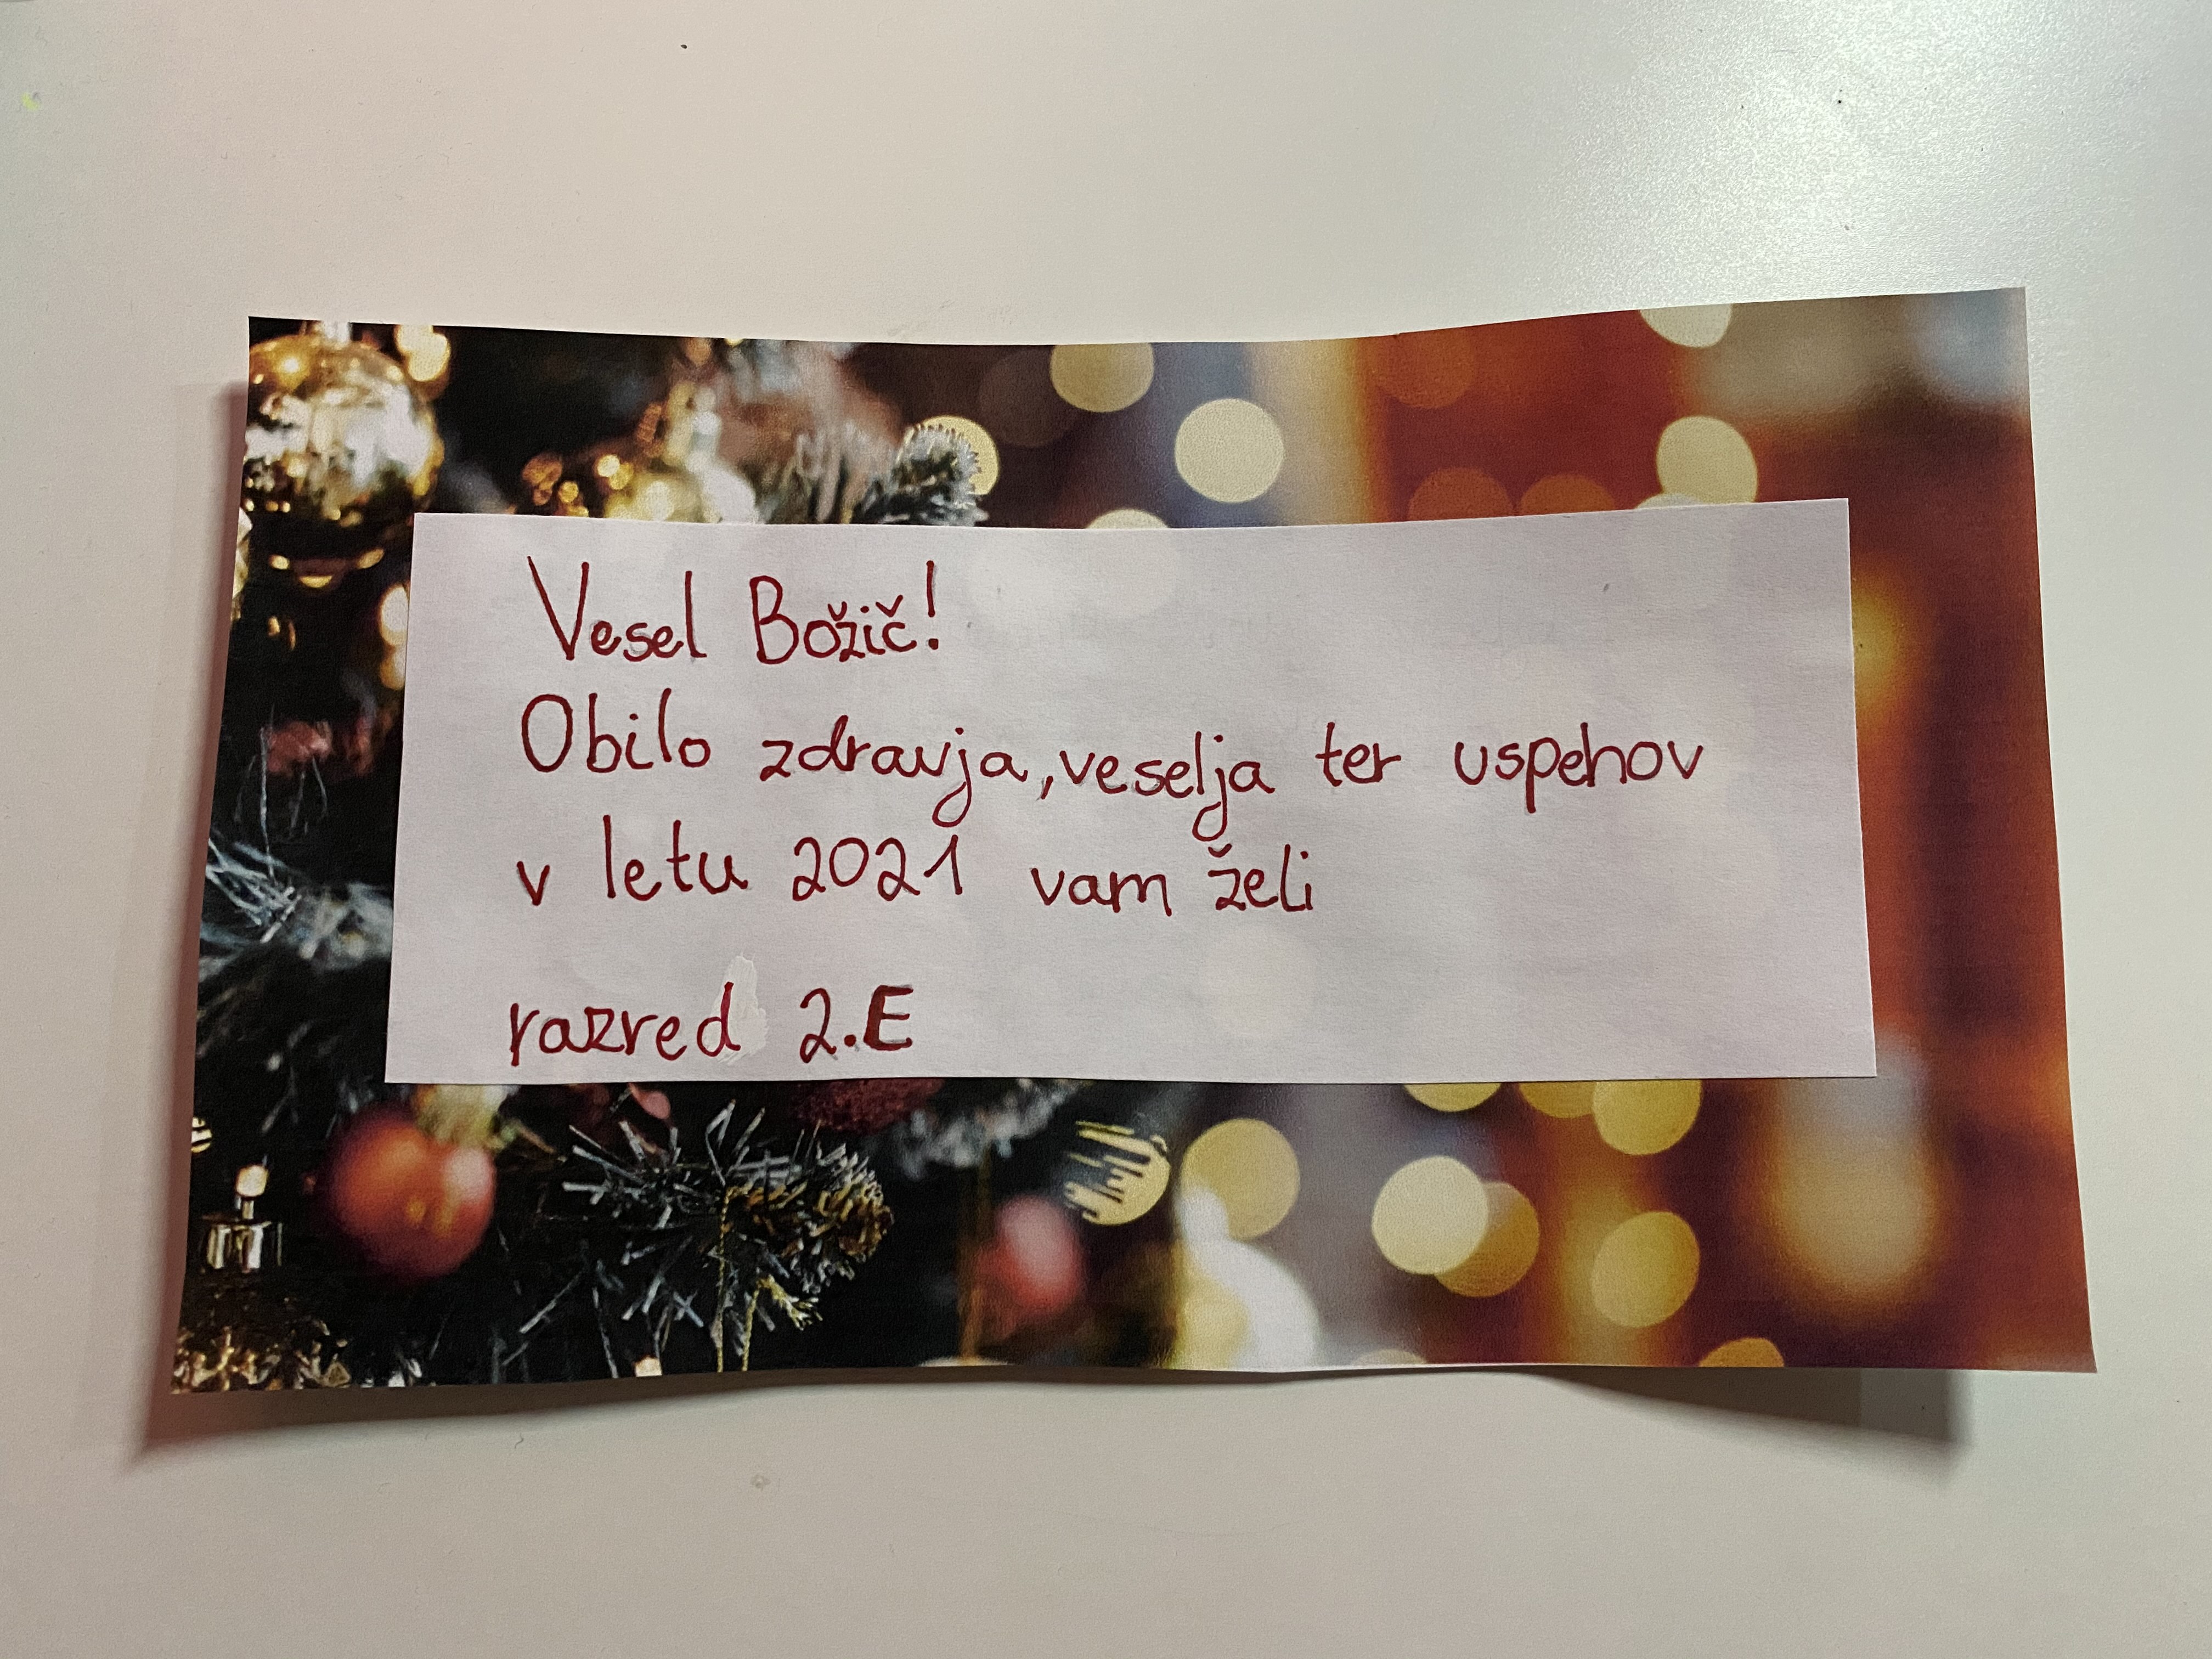 Vesel Božič!
Obilo zdravja, veselja ter uspehov
v letu 2021 vam želi
razred 2.E